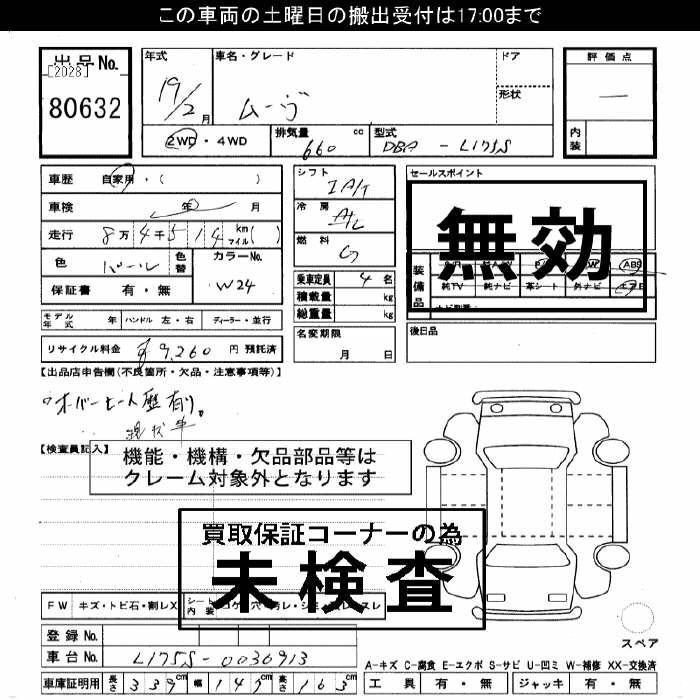 この車両の土曜日の搬出受付は17:00まで
出品No.
[2028]
80632
年式
19/2月
車名・グレード
ムーヴ
ドア
形状
2WD・4WD
排気量 660 cc
型式 DBA - L175S
評価点
—
内装
車歴 自家用・( )
車検 年 月
走行 8万4千514 km マイル( )
色 パール 色替 カラーNo. W24
保証書 有・無
シフト IA/T
冷房 A/C
燃料 G
乗車定員 4名
積載量 kg
総重量 kg
名変期限 月 日
セールスポイント
無効
装備品
ABS
純TV 純ナビ 革シート 外ナビ エアB
後日品
モデル年式 年 ハンドル 左・右 ディーラー・並行
リサイクル料金 ¥9,260 円 預託済
【出品店申告欄(不良箇所・欠品・注意事項等)】
オーバーヒート歴有り。
現状車
【検査員記入】
機能・機構・欠品部品等は
クレーム対象外となります
買取保証コーナーの為
未検査
FW キズ・トビ石・割レX シート内装 コゲ・穴・汚レ・シミ・破レ・スレ
登録No.
車台No. L175S-0036913
車庫証明用 長さ 339cm 幅 147cm 高さ 163cm
スペア
A-キズ C-腐食 E-エクボ S-サビ U-凹ミ W-補修 XX-交換済
工具 有・無 ジャッキ 有・無